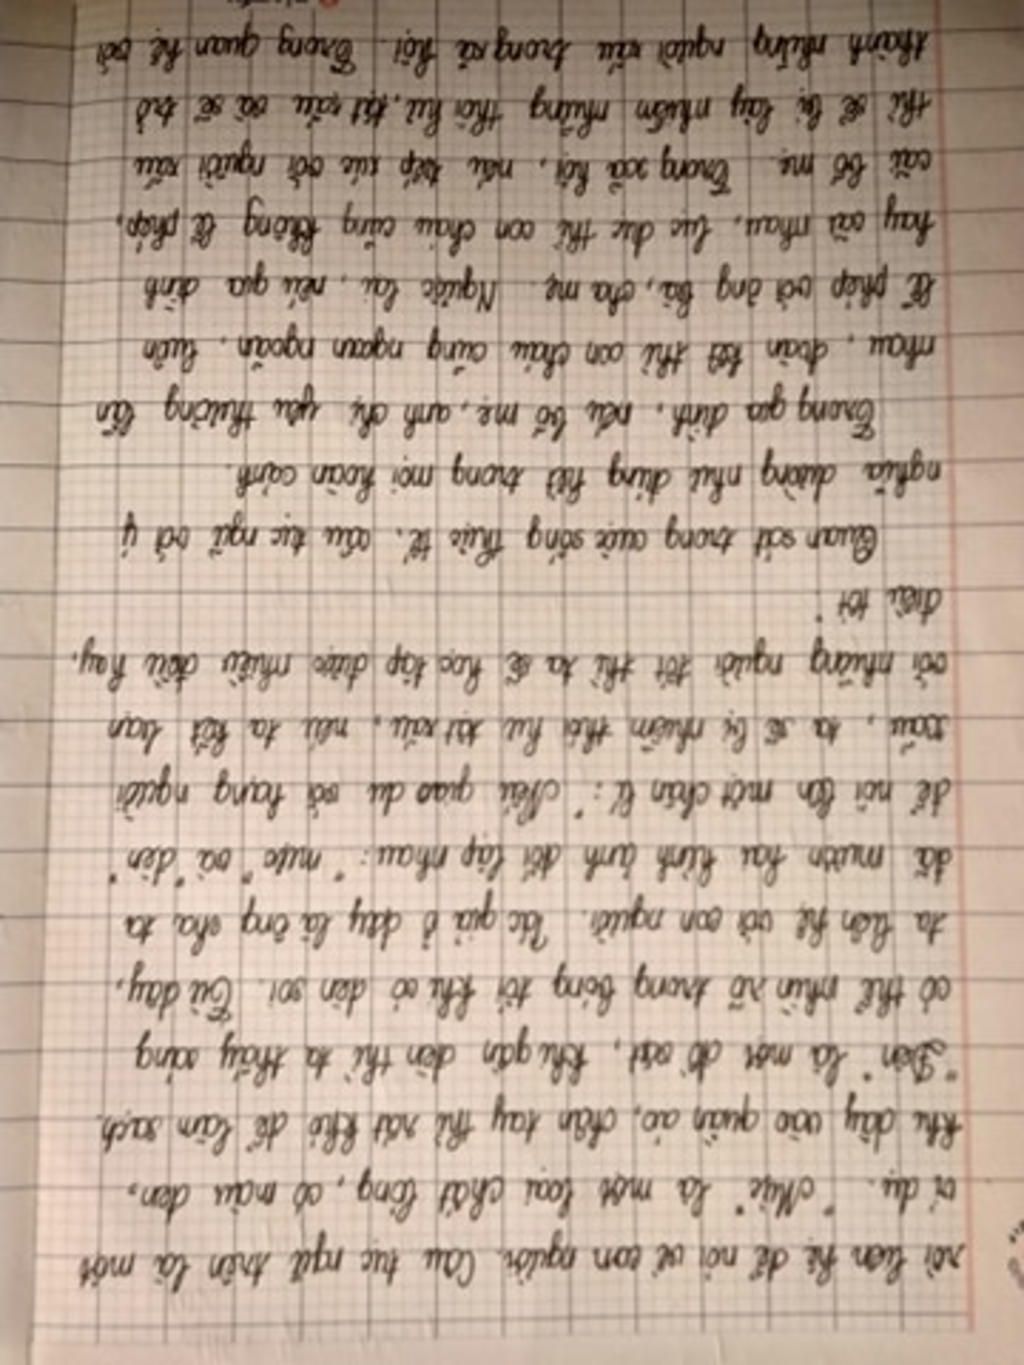 rồi liên hệ để nói về con người. Câu tục ngữ trên là một
ví dụ. "Mực" là một loại chất lỏng, có màu đen,
khi dây vào quần áo, chân tay thì rất khó để làm sạch.
"Đèn" là một đồ vật, khi gần đèn thì ta thấy sáng
có thể nhìn rõ trong bóng tối khi có đèn soi. Từ đây,
ta liên hệ với con người. Tác giả ở đây là ông cha ta
đã mượn hai hình ảnh đối lập nhau: "mực" và "đèn"
để nói lên một chân lí: "Nếu giao du với hạng người
xấu, ta sẽ bị nhiễm thói hư tật xấu, nếu ta kết bạn
với những người tốt thì ta sẽ học tập được nhiều điều hay,
điều tốt".
Quan sát trong cuộc sống thực tế, câu tục ngữ với ý
nghĩa dường như đúng hết trong mọi hoàn cảnh.
Trong gia đình, nếu bố mẹ, anh chị yêu thương lẫn
nhau, đoàn kết thì con cháu cũng ngoan ngoãn, luôn
lễ phép với ông bà, cha mẹ. Ngược lại, nếu gia đình
hay cãi nhau, lục đục thì con cháu cũng không lễ phép,
cãi bố mẹ. Trong xã hội, nếu tiếp xúc với người xấu
thì sẽ bị lây nhiễm những thói hư, tật xấu và sẽ trở
thành những người xấu trong xã hội. Trong quan hệ với